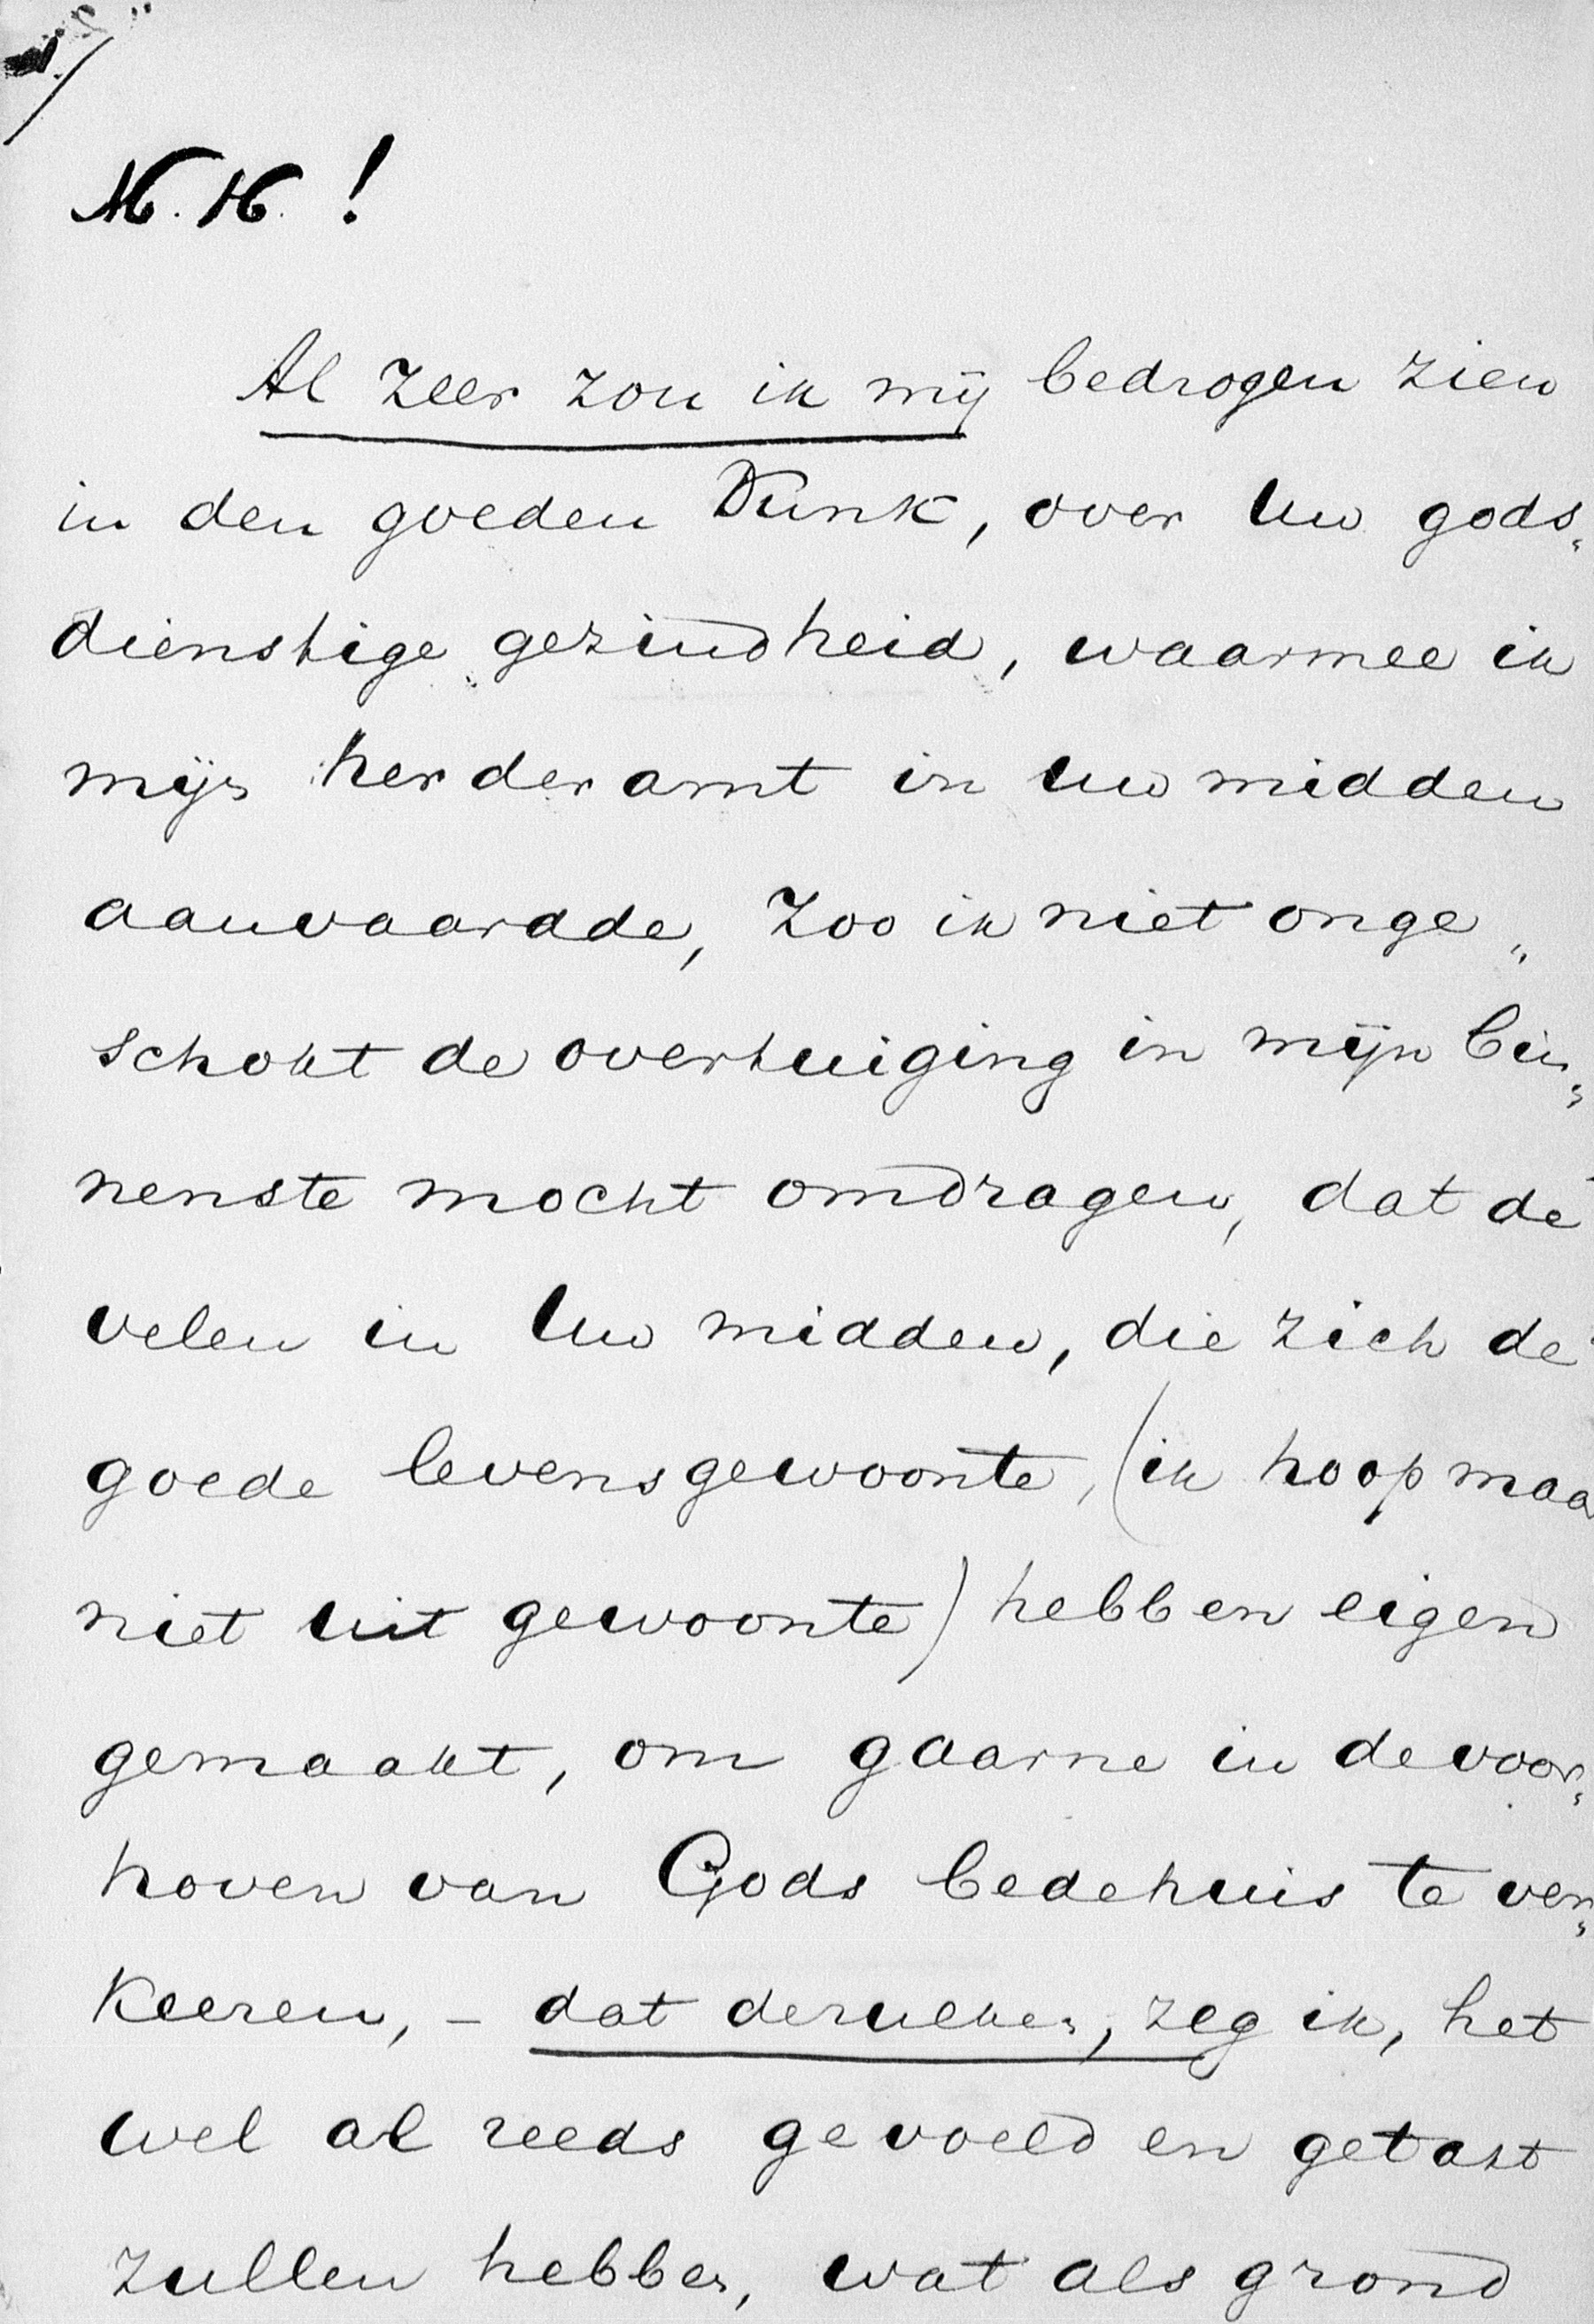 M. H. !
Al zeer zou ik mij bedrogen zien
in den goeden dunk, over Uw gods„
dienstige gezindheid, waarmee ik
mijn herderamt in Uw midden
aanvaardde, zoo ik niet onge„
schokt de overtuiging in mijn bin„
nenste mocht omdragen, dat de
velen in Uw midden, die zich de
goede levensgewoonte, (ik hoop maa
niet uit gewoonte) hebben eigen
gemaakt, om gaarne in de voor„
hoven van Gods bedehuis te ver„
keeren, – dat derulker, zeg ik, het
wel al reeds gevoeld en getast
zullen hebben, wat als grond